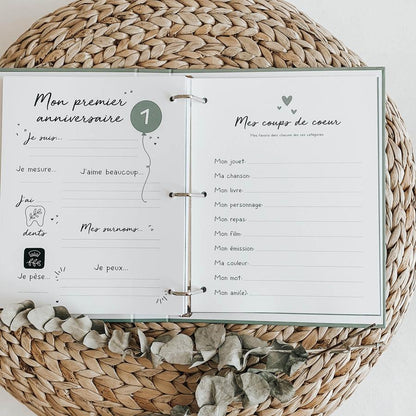 Mon premier
anniversaire
1
Je suis...
Je mesure...
J'aime beaucoup...
J'ai
dents
Mes surnoms...
Je pèse...
Je peux...
Mes coups de coeur
Mes favoris dans chacune des ces catégories
Mon jouet:
Ma chanson:
Mon livre:
Mon personnage:
Mon repas:
Mon film:
Mon émission:
Ma couleur:
Mon mot:
Mon ami(e):